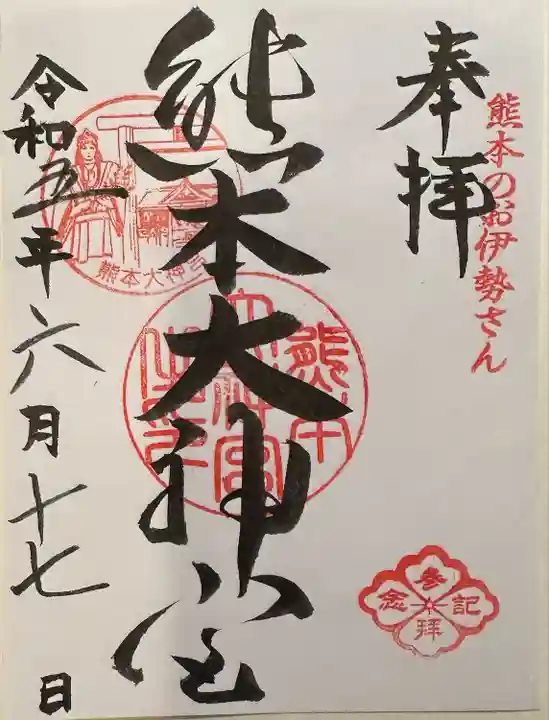 奉拝
熊本のお伊勢さん
熊本大神宮
熊本大神宮
令和五年六月十七日
参拝記念